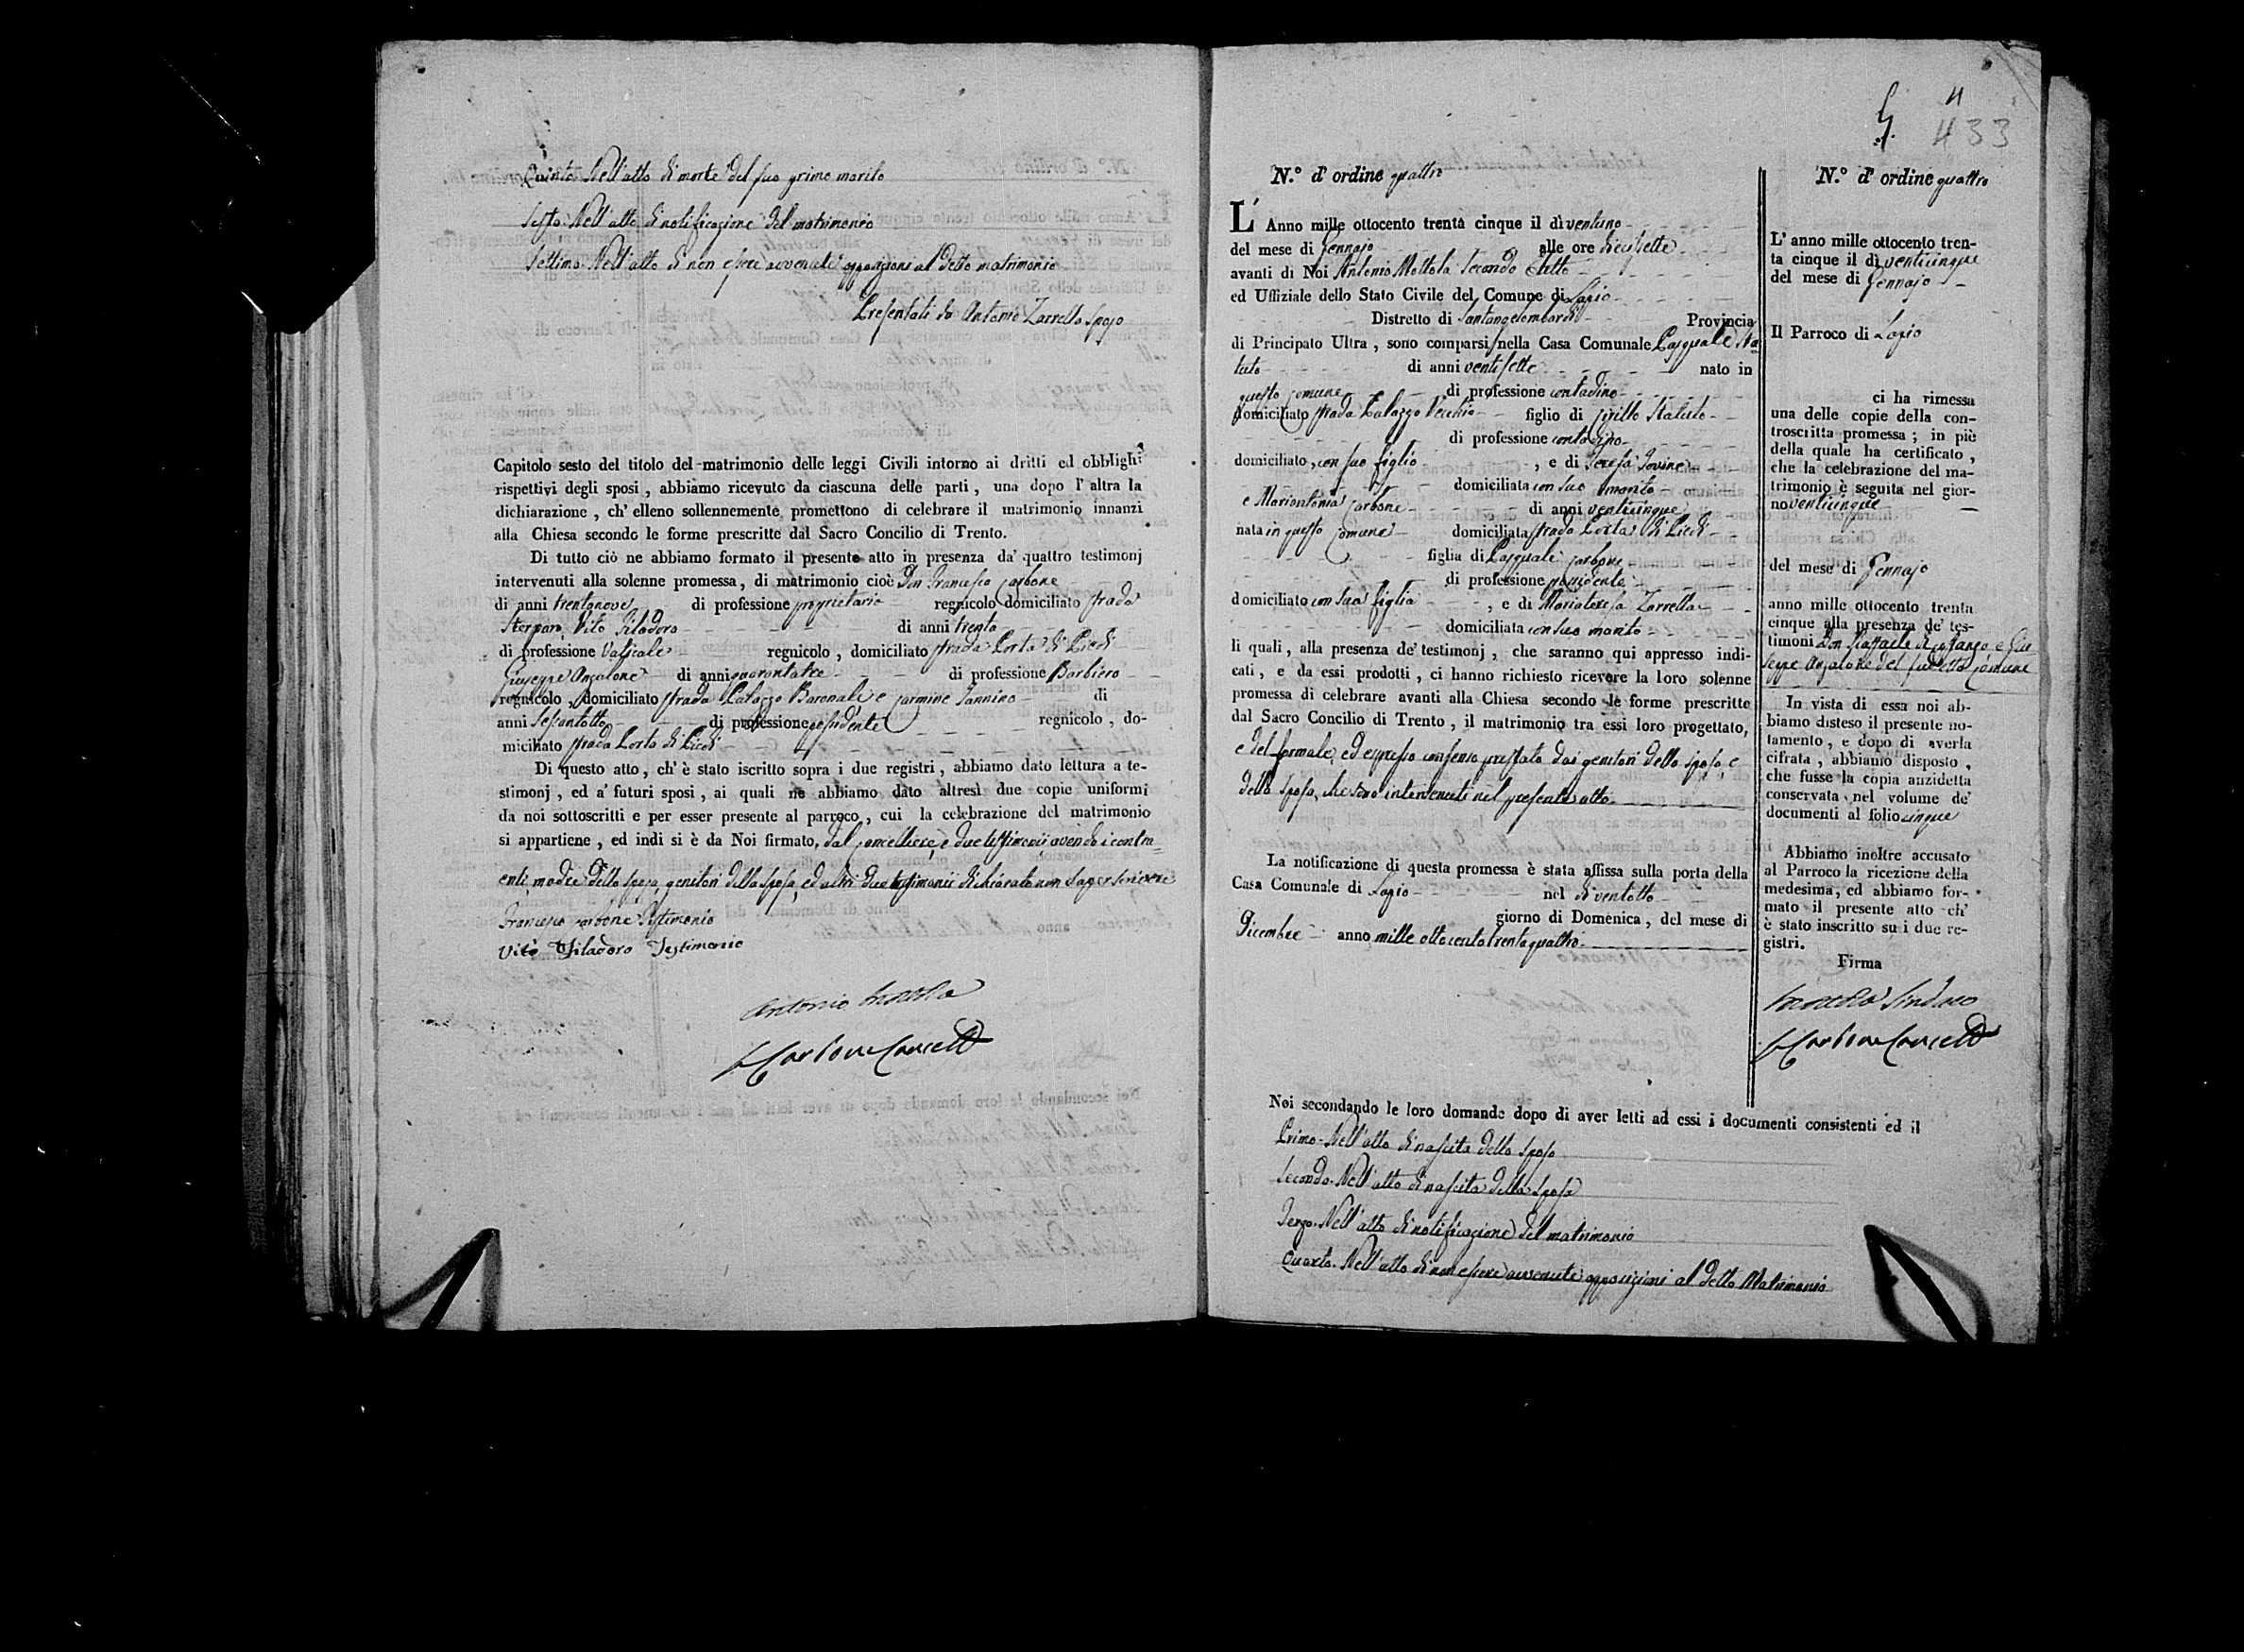 Quinto. Nell'atto di morte del suo primo marito
Sesto. Nell'atto di notificazione del matrimonio
Settimo. Nell'atto di non essere avvenute opposizioni al detto matrimonio
Presentati da Antonio Zarrella Sposo
Capitolo sesto del titolo del matrimonio delle leggi Civili intorno ai dritti ed obblighi
rispettivi degli sposi, abbiamo ricevuto da ciascuna delle parti, una dopo l'altra la
dichiarazione, ch'elleno sollennemente promettono di celebrare il matrimonio innanzi
alla Chiesa secondo le forme prescritte dal Sacro Concilio di Trento.
Di tutto ciò ne abbiamo formato il presente atto in presenza da' quattro testimonj
intervenuti alla solenne promessa, di matrimonio cioè Don Francesco Carbone
di anni trentanove di professione proprietario regnicolo domiciliato strada
Sterparo, Vito Filadoro di anni trenta
di professione Vaticale regnicolo, domiciliato strada Porta di Piedi
Giuseppe Anzalone di anni quarantatre di professione Barbiero
regnicolo, domiciliato strada Palazzo Baronale e Carmine Iannino di
anni sessantotto di professione possidente regnicolo, do-
miciliato strada Porta di Piedi
Di questo atto, ch'è stato iscritto sopra i due registri, abbiamo dato lettura a te-
stimonj, ed a' futuri sposi, ai quali ne abbiamo dato altresì due copie uniformi
da noi sottoscritti e per esser presente al parroco, cui la celebrazione del matrimonio
si appartiene, ed indi si è da Noi firmato, dal Cancelliere, e due testimonii avendo i contra=
enti, madre dello sposo, genitori della sposa, ed altri due testimonii dichiarato non saper scrivere
Francesco Carbone Testimonio
Vito Filadoro Testimonio
Antonio Mottola
Carbone Cancell
4
433
N.° d'ordine quattro
L'Anno mille ottocento trenta cinque il dì ventuno
del mese di Gennajo alle ore diecisette
avanti di Noi Antonio Mottola Secondo Eletto
ed Uffiziale dello Stato Civile del Comune di Lapio
Distretto di Santangelombardi Provincia
di Principato Ultra, sono comparsi nella Casa Comunale Pasquale Sta
tuto di anni ventisette nato in
questo Comune di professione contadino
domiciliato strada Palazzo Vecchio figlio di Cirillo Statuto
di professione contadino
domiciliato, con suo figlio, e di Teresa Iovine
domiciliata con suo marito
e Mariantonia Carbone di anni venticinque
nata in questo Comune domiciliata strada Porta di Piedi
figlia di Pasquale Carbone
di professione possidente
domiciliato con sua figlia, e di Mariateresa Zarrella
domiciliata con suo marito
li quali, alla presenza de' testimonj, che saranno qui appresso indi-
cati, e da essi prodotti, ci hanno richiesto ricevere la loro solenne
promessa di celebrare avanti alla Chiesa secondo le forme prescritte
dal Sacro Concilio di Trento, il matrimonio tra essi loro progettato,
e del formale, ed espresso consenso prestato dai genitori dello sposo, e
della sposa, che sono intervenuti nel presente atto.
La notificazione di questa promessa è stata affissa sulla porta della
Casa Comunale di Lapio nel dì ventotto
giorno di Domenica, del mese di
Dicembre anno mille ottocento trentaquattro.
N.° d'ordine quattro
L'anno mille ottocento tren-
ta cinque il dì venticinque
del mese di Gennajo
Il Parroco di Lapio
ci ha rimessa
una delle copie della con-
troscritta promessa; in piè
della quale ha certificato,
che la celebrazione del ma-
trimonio è seguita nel gior-
no venticinque
del mese di Gennajo
anno mille ottocento trenta
cinque alla presenza de' tes-
timoni Don Raffaele di Costanzo, e Giu
seppe Anzalone del suddetto Comune
In vista di essa noi ab-
biamo disteso il presente no-
tamento, e dopo di averla
cifrata, abbiamo disposto,
che fusse la copia anzidetta
conservata nel volume de'
documenti al folio cinque
Abbiamo inoltre accusato
al Parroco la ricezione della
medesima, ed abbiamo for-
mato il presente atto ch'
è stato inscritto su i due re-
gistri.
Firma
Mottola Sindaco
Carbone Cancell
Noi secondando le loro domande dopo di aver letti ad essi i documenti consistenti ed il
Primo. Nell'atto di nascita dello sposo
Secondo. Nell'atto di nascita della sposa
Terzo. Nell'atto di notificazione del matrimonio
Quarto. Nell'atto di non essere avvenute opposizioni al detto Matrimonio